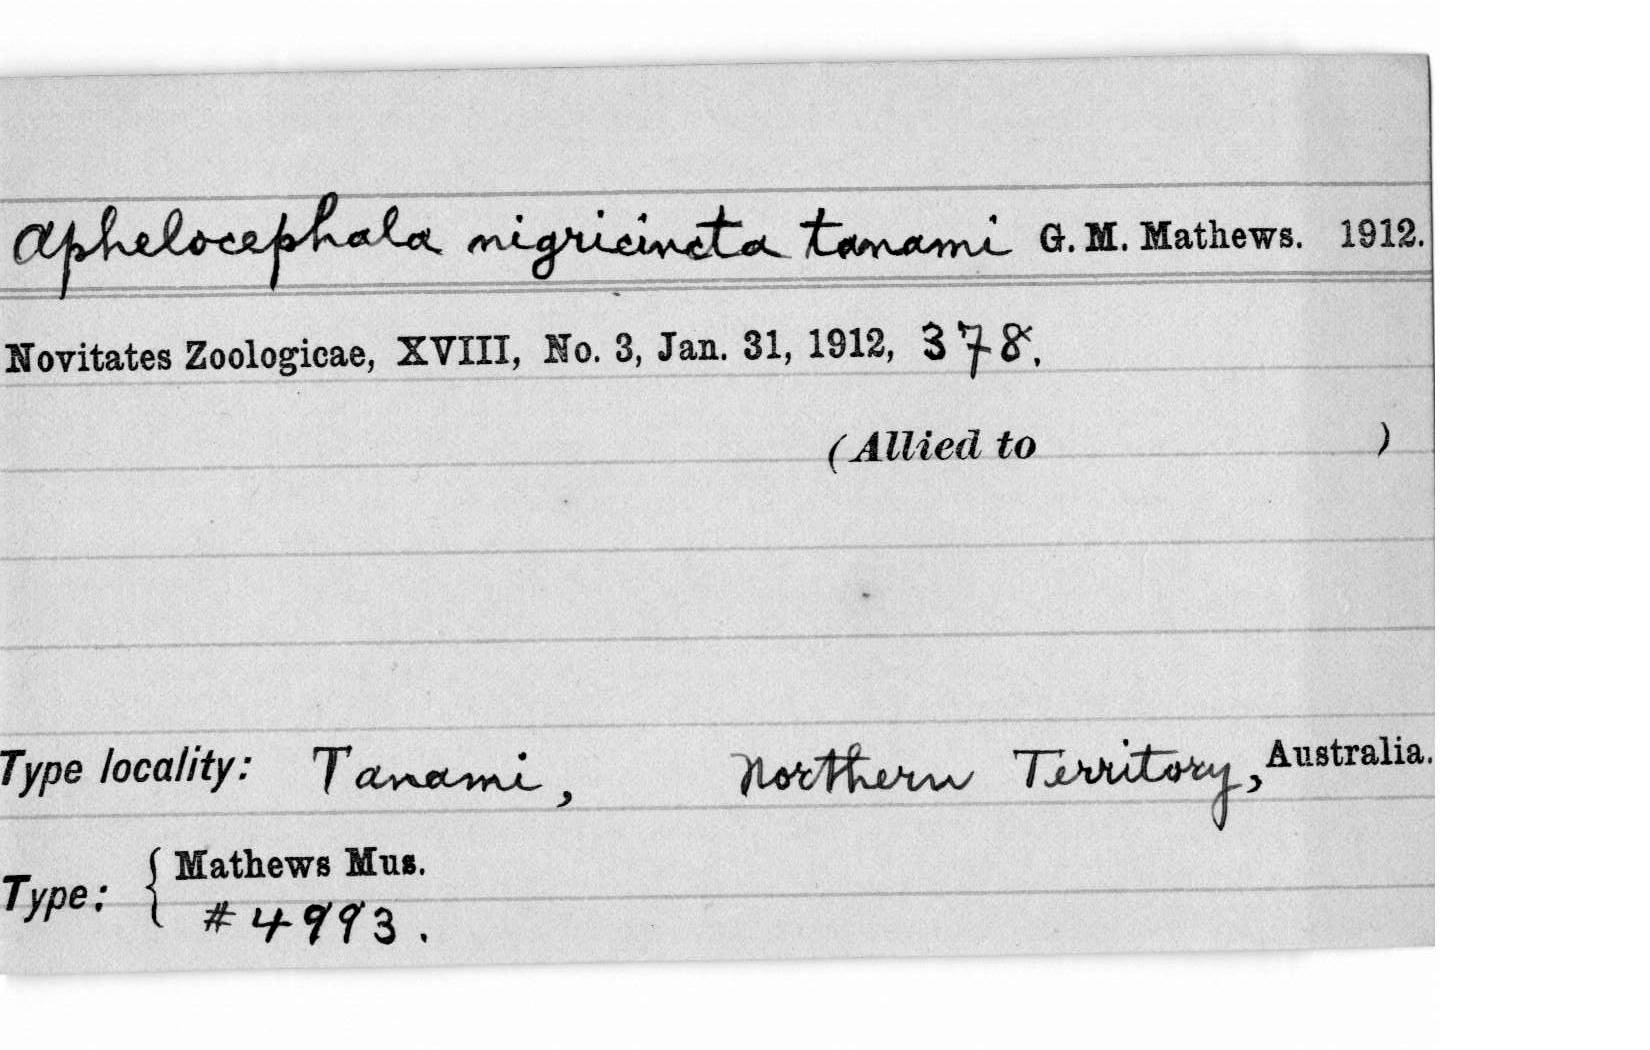 Aphelocephala nigricincta tanami G. M. Mathews. 1912.
Novitates Zoologicae, XVIII, No. 3, Jan. 31, 1912, 378.
(Allied to )
Type locality: Tanami, Northern Territory, Australia.
Type: { Mathews Mus.
#4993.